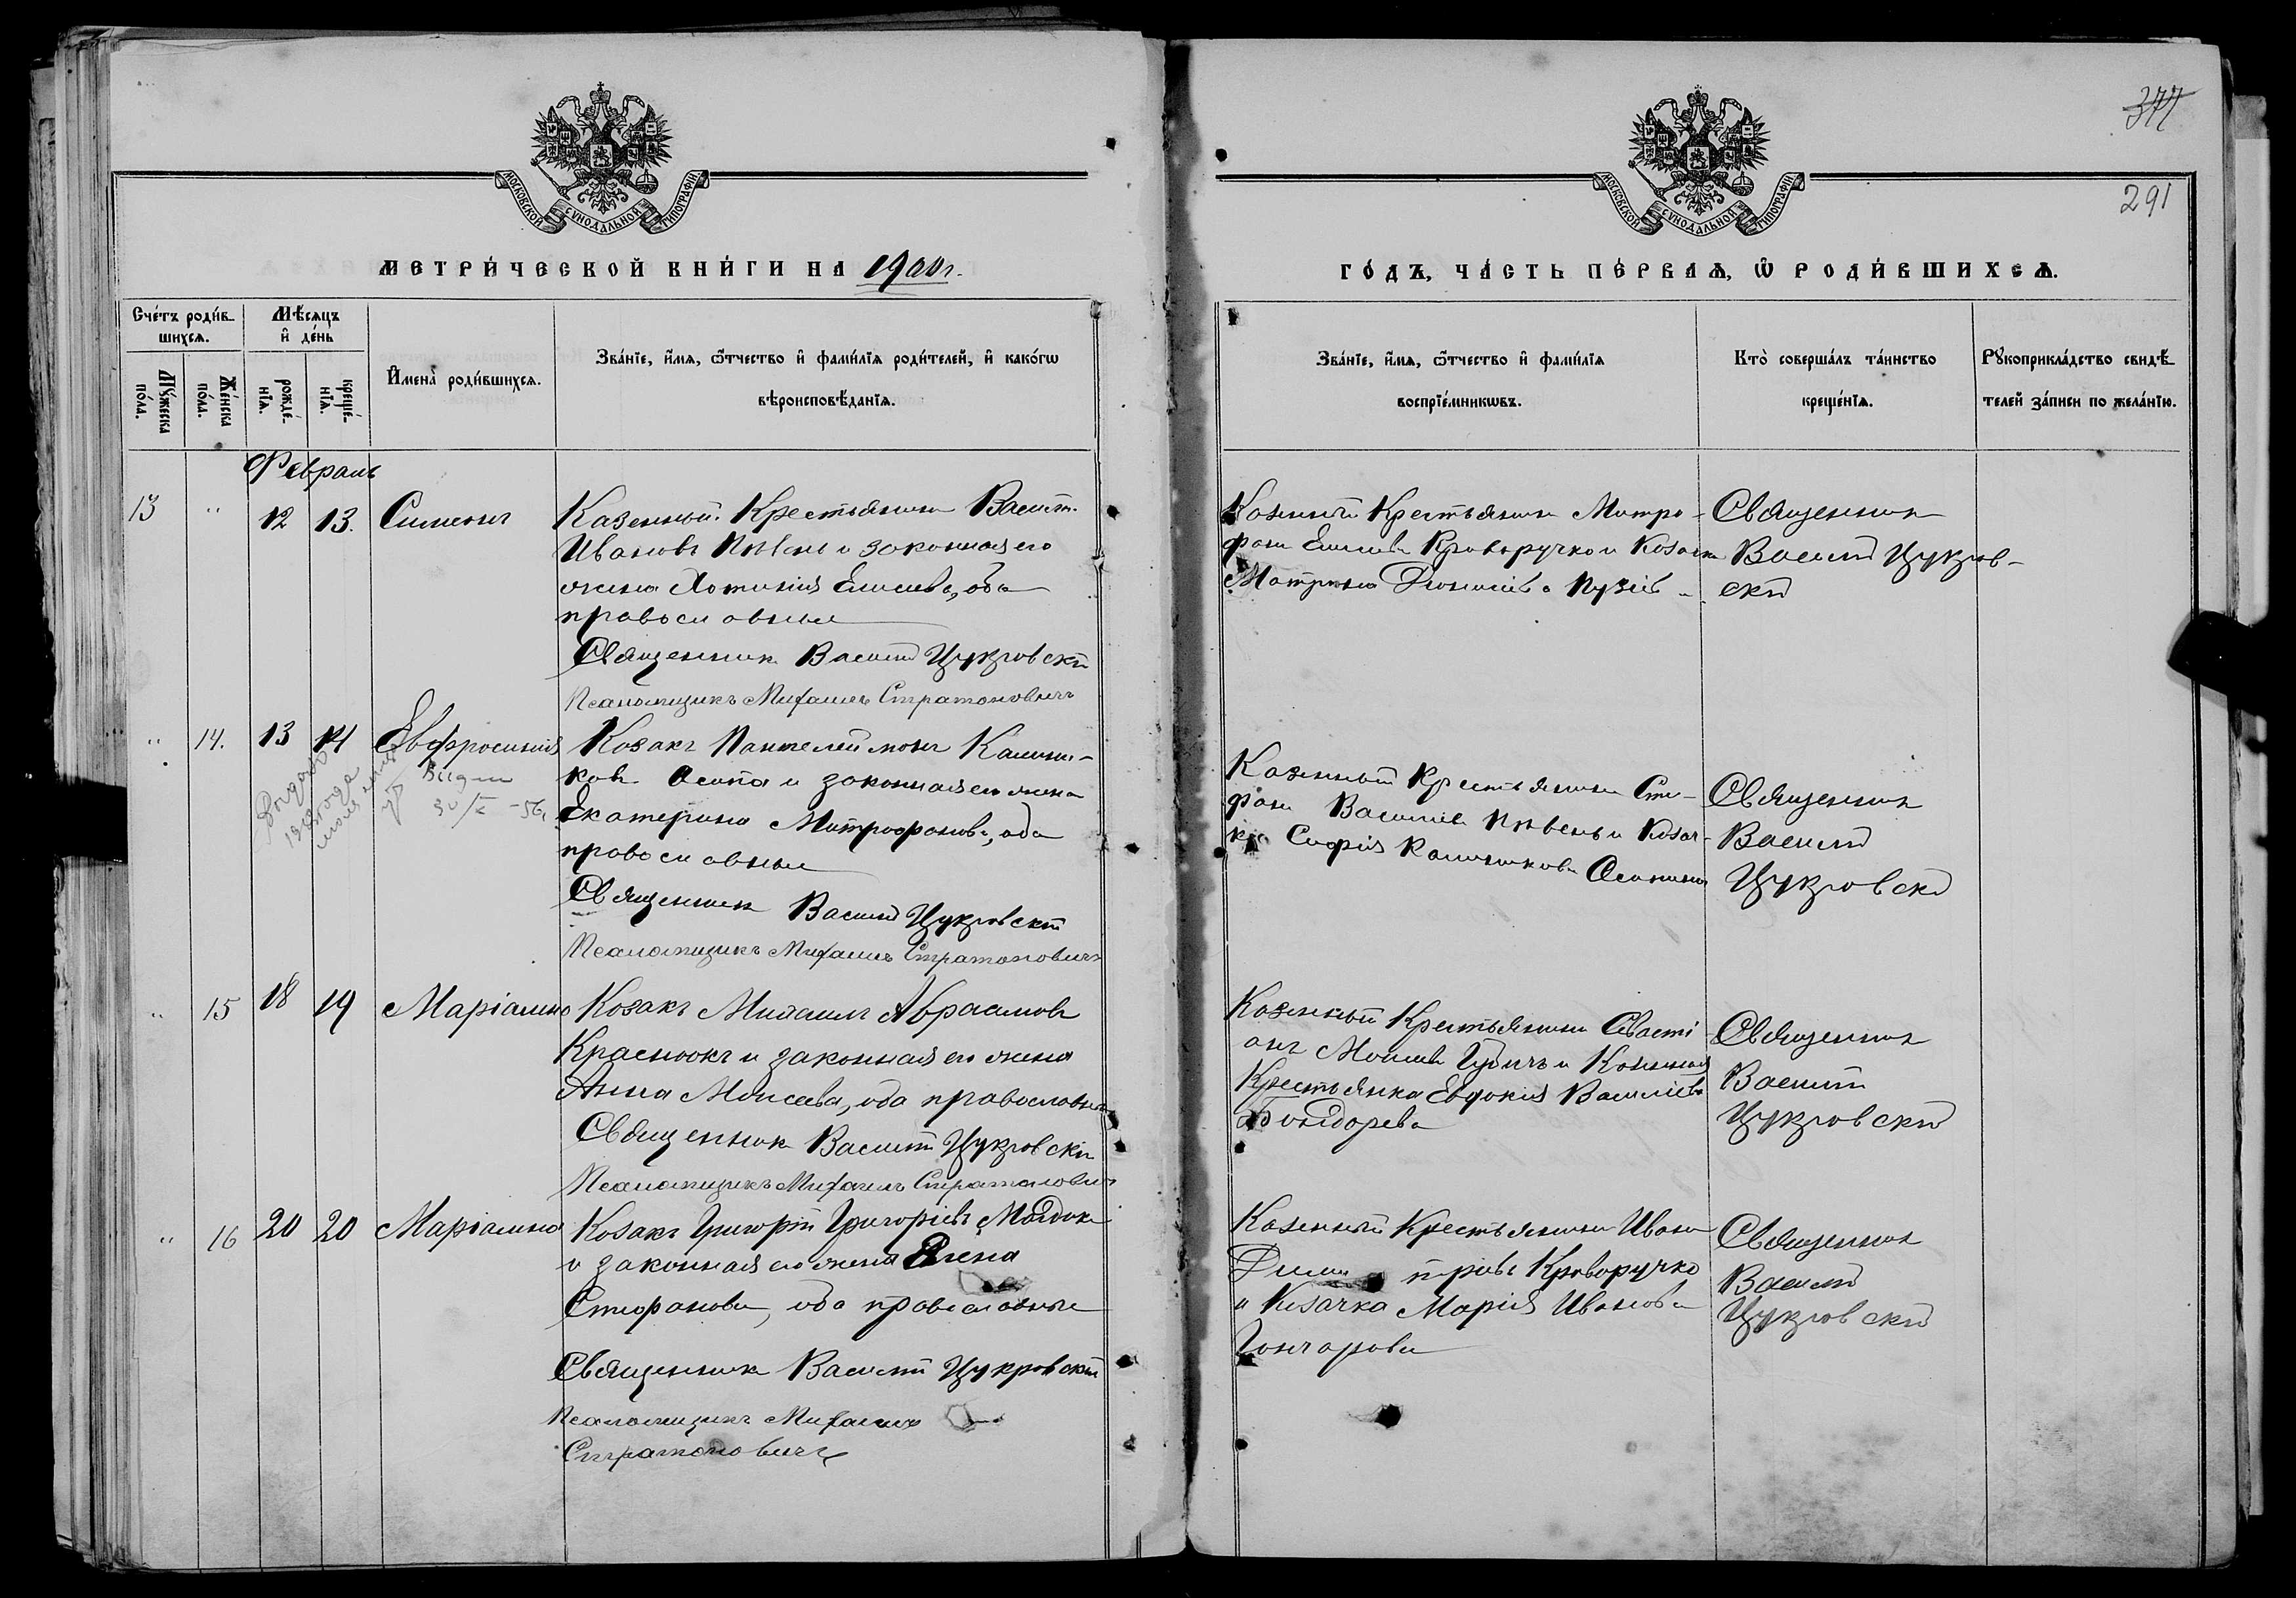 377
291
МОСКОВСКОЙ СУНОДАЛЬНОЙ ТИПОГРАФІИ
МОСКОВСКОЙ СУНОДАЛЬНОЙ ТИПОГРАФІИ
МЕТРИ́ЧЕСКОЙ КНИ́ГИ НА 1900 г.
ГО́ДЪ, ЧА́СТЬ ПЕ́РВАѦ, Ѡ҆ РОДИ́ВШИХСѦ.
Сче́тъ роди́в-
шихсѧ.
Мѣ́сѧцъ
и҆ де́нь
Мꙋ́жеска по́ла.
Же́нска по́ла.
рожде́-
нїѧ.
креще́-
нїѧ.
И҆мена̀ роди́вшихсѧ.
Зва́нїе, и҆́мѧ, ѻ҆́тчество и҆ фами́лїѧ роди́телей, и҆ како́гѡ
вѣроисповѣ́данїѧ.
Зва́нїе, и҆́мѧ, ѻ҆́тчество и҆ фами́лїѧ
воспрїе́мникѡвъ.
Кто̀ соверша́лъ та́инство
креще́нїѧ.
Рꙋкоприкла́дство свидѣ́-
телей за́писи по жела́нїю.
Февраль
13 " 12 13. Симеонъ
Казенный Крестьянинъ Василій
Ивановъ Пивень и законная его
жена Хотинія Елисеева, оба
православные
Священникъ Василій Цукровскій
Псаломщикъ Михаилъ Стратоновичъ
Казенный Крестьянинъ Митро-
фанъ Елисеевъ Криворучко и Козачка
Матрона Діонисіева
Священникъ
Василій Цукров-
скій
" 14. 13 14 Евфросинія
Видан
30/X - 56
Козакъ Пантелеймонъ Калини-
ковъ Осипа и законная его жена
Екатерина Митрофанова, оба
православные
Священникъ Василій Цукровскій
Псаломщикъ Михаилъ Стратоновичъ
Казенный Крестьянинъ Сте-
фанъ Василіевъ Пивень и Козач-
ка Софія Калиникова Осипина
Священникъ
Василій
Цукровскій
" 15 18 19 Маріамна
Козакъ Михаилъ Авраамовъ
Красноокъ и законная его жена
Анна Моисеева, оба православные
Священникъ Василій Цукровскій
Псаломщикъ Михаилъ Стратоновичъ
Казенный Крестьянинъ Севасті-
анъ Моисеевъ и Казенная
Крестьянка Евдокія Василіева
Бондарева
Священникъ
Василій
Цукровскій
" 16 20 20 Маріамна
Козакъ Григорій Григоріевъ
и законная его жена Елена
Стефанова, оба православные
Священникъ Василій Цукровскій
Псаломщикъ Михаилъ
Стратоновичъ
Казенный Крестьянинъ Иванъ
Криворучко
и Козачка Марія Иванова
Гончарова
Священникъ
Василій
Цукровскій